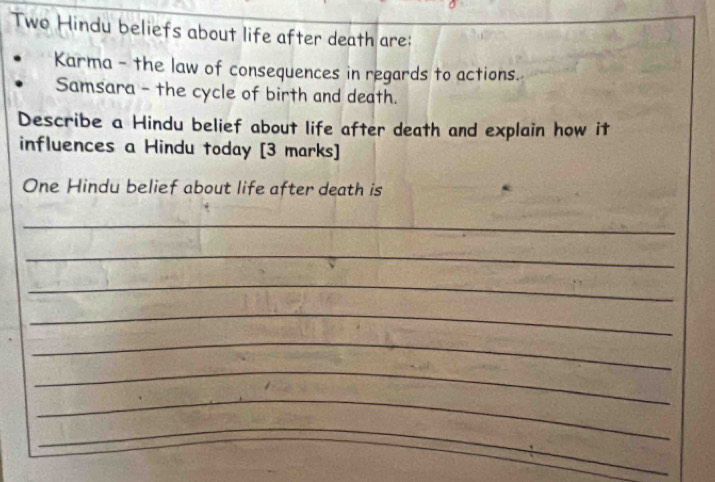 Two Hindu beliefs about life after death are:
• Karma - the law of consequences in regards to actions.
• Samsara - the cycle of birth and death.
Describe a Hindu belief about life after death and explain how it
influences a Hindu today [3 marks]
One Hindu belief about life after death is